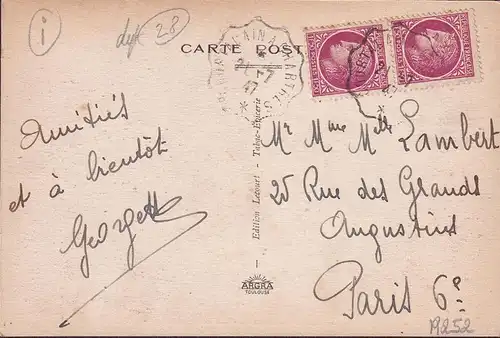 i
28
CARTE POST
21-7
47
Amitiés
et à bientôt
Georgette
Edition Letourt - Tabac-Epicerie
ARGRA
TOULOUSE
Mr Mme Mlle Lambert
25 Rue des Grands
Augustins
Paris 6e
19252